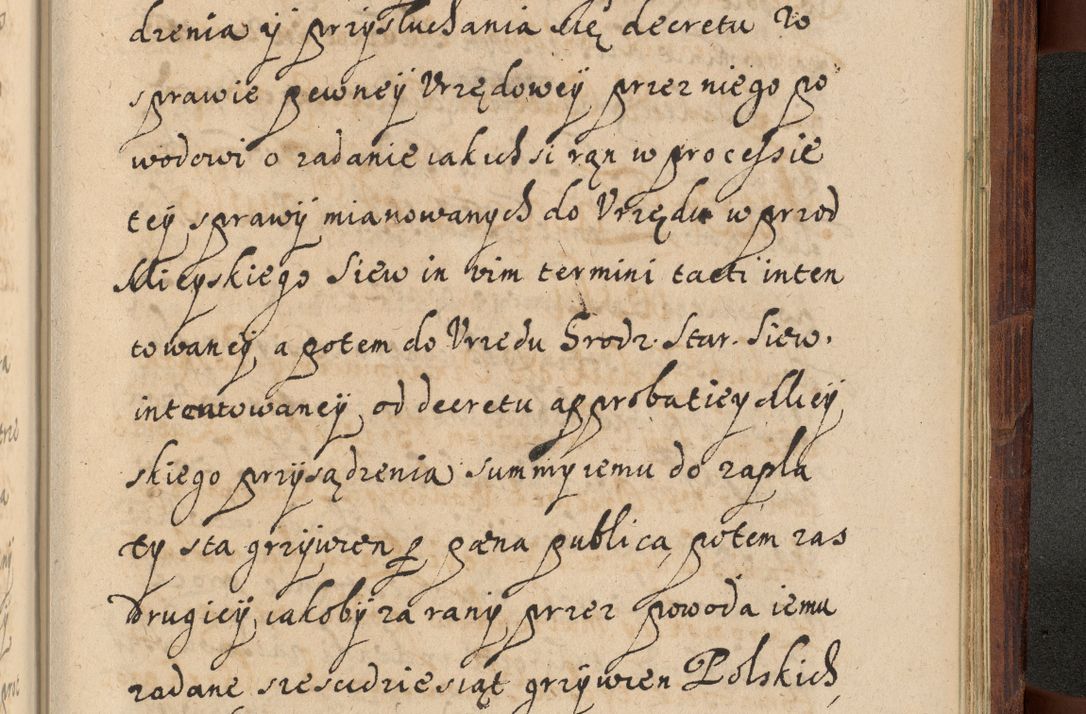 dzenia ÿ przysłuchania się decretu w
sprawie pewneÿ Urzędoweÿ przez niego po
wodowi o zadanie iakichsi ran w processie
teÿ sprawÿ mianowanych do Urzędu w przod
Mieyskiego Siew in vim termini tacti inten
towaneÿ, a potem do Urzędu Grodz. Star. Siew.
intentowaneÿ, od decretu approbatiey Mieÿ
skiego przÿsądzenia summÿ iemu do zapła
tÿ sta grzÿwien p pæna publica, potem zas
drugieÿ, iakobÿ za ranÿ przez powoda iemu
zadane szescdziesiąt grzÿwien Polskich,